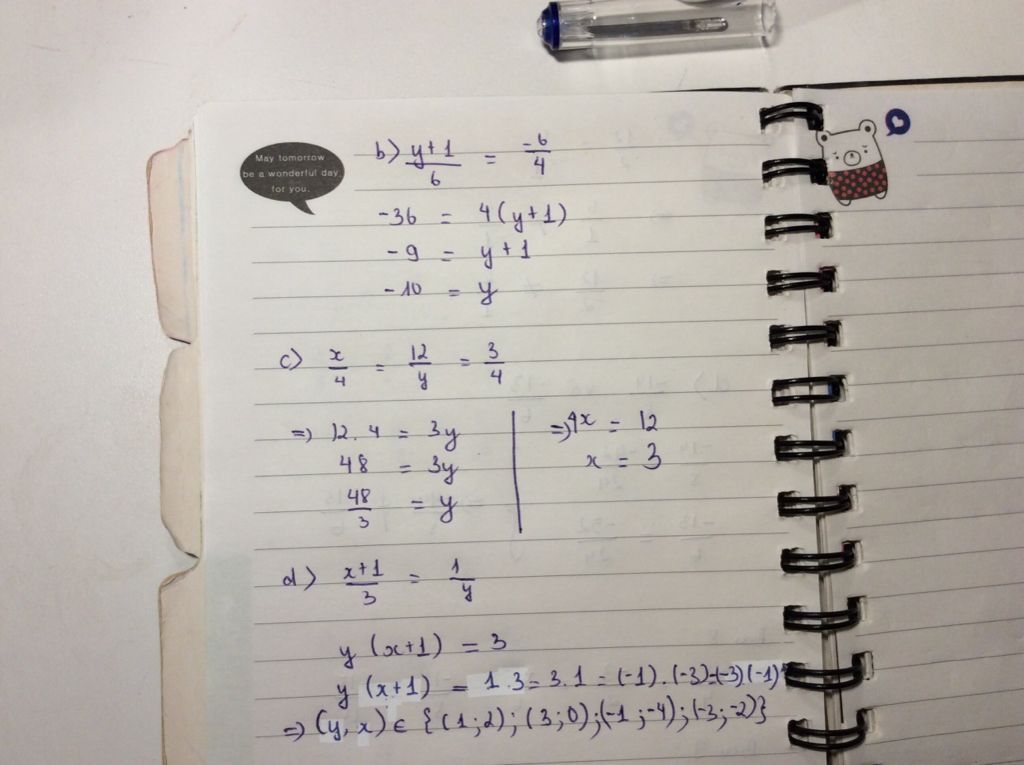 May tomorrow
be a wonderful day
for you.
b) (y+1)/6 = -6/4
-36 = 4(y+1)
-9 = y+1
-10 = y
c) x/4 = 12/y = 3/4
=> 12.4 = 3y
48 = 3y
48/3 = y
=> 4x = 12
x = 3
d) (x+1)/3 = 1/y
y (x+1) = 3
y (x+1) = 1.3 = 3.1 = (-1).(-3) = (-3)(-1)
=> (y, x) ∈ {(1;2);(3;0);(-1;-4);(-3;-2)}